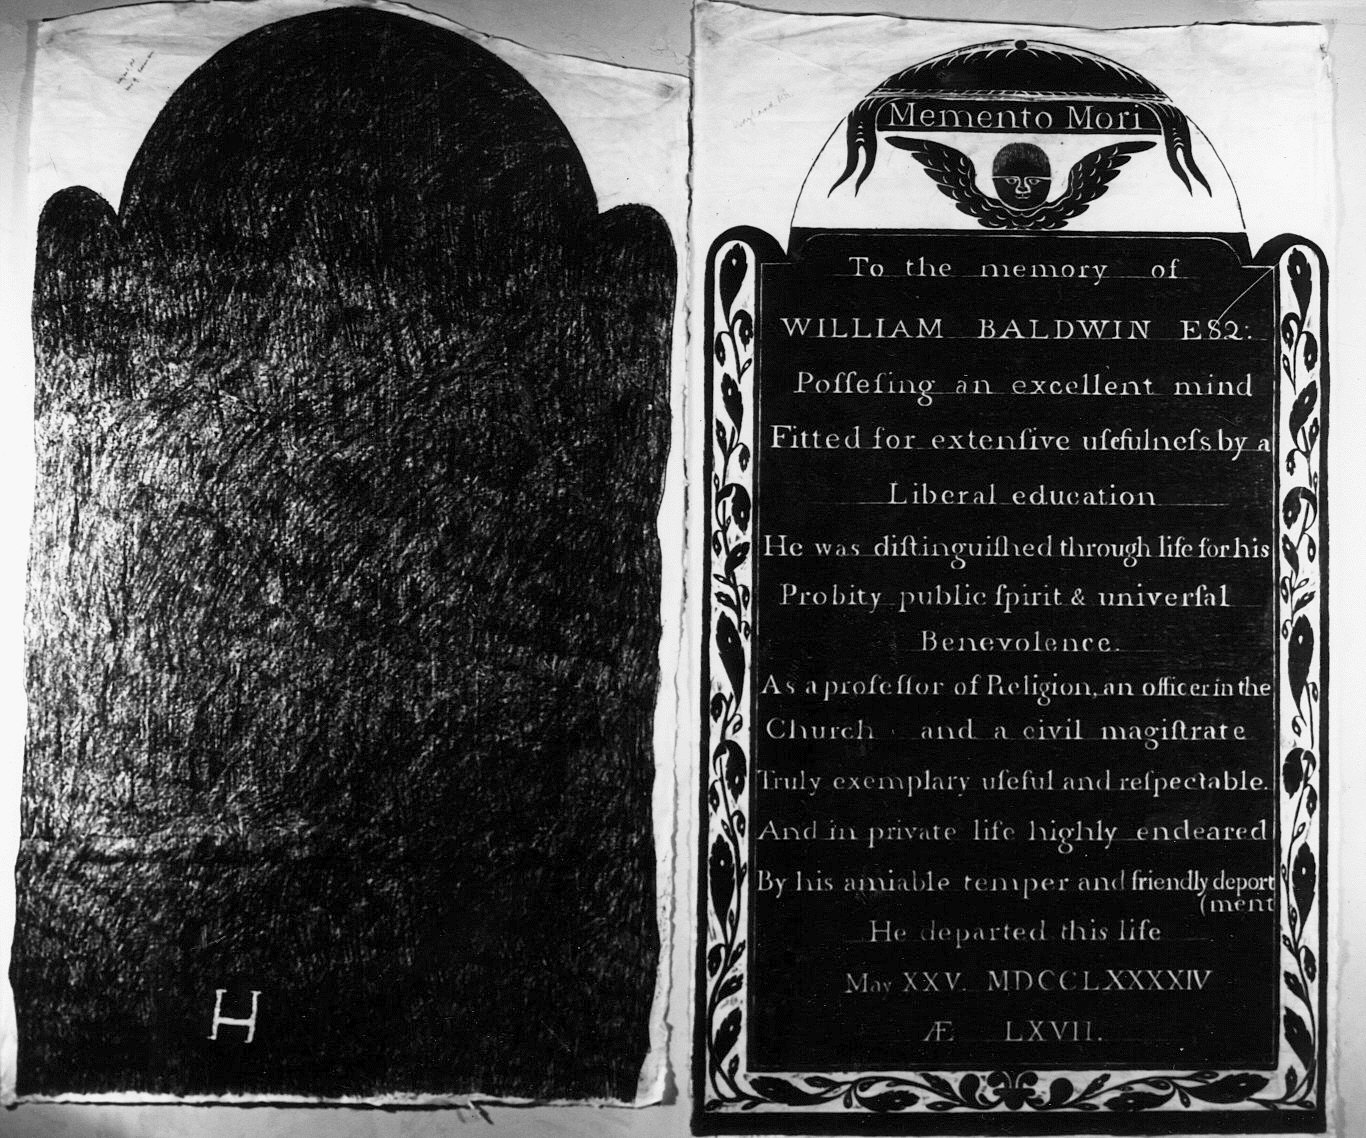 H
Memento Mori
To the memory of
WILLIAM BALDWIN ESQ:
Poſſeſing an excellent mind
Fitted for extenſive uſefulneſs by a
Liberal education
He was diſtinguiſhed through life for his
Probity public ſpirit & univerſal
Benevolence.
As a profeſſor of Religion, an officer in the
Church and a civil magiſtrate
Truly exemplary uſeful and reſpectable.
And in private life highly endeared
By his amiable temper and friendly deport
(ment
He departed this life
May XXV. MDCCLXXXXIV
Æ LXVII.